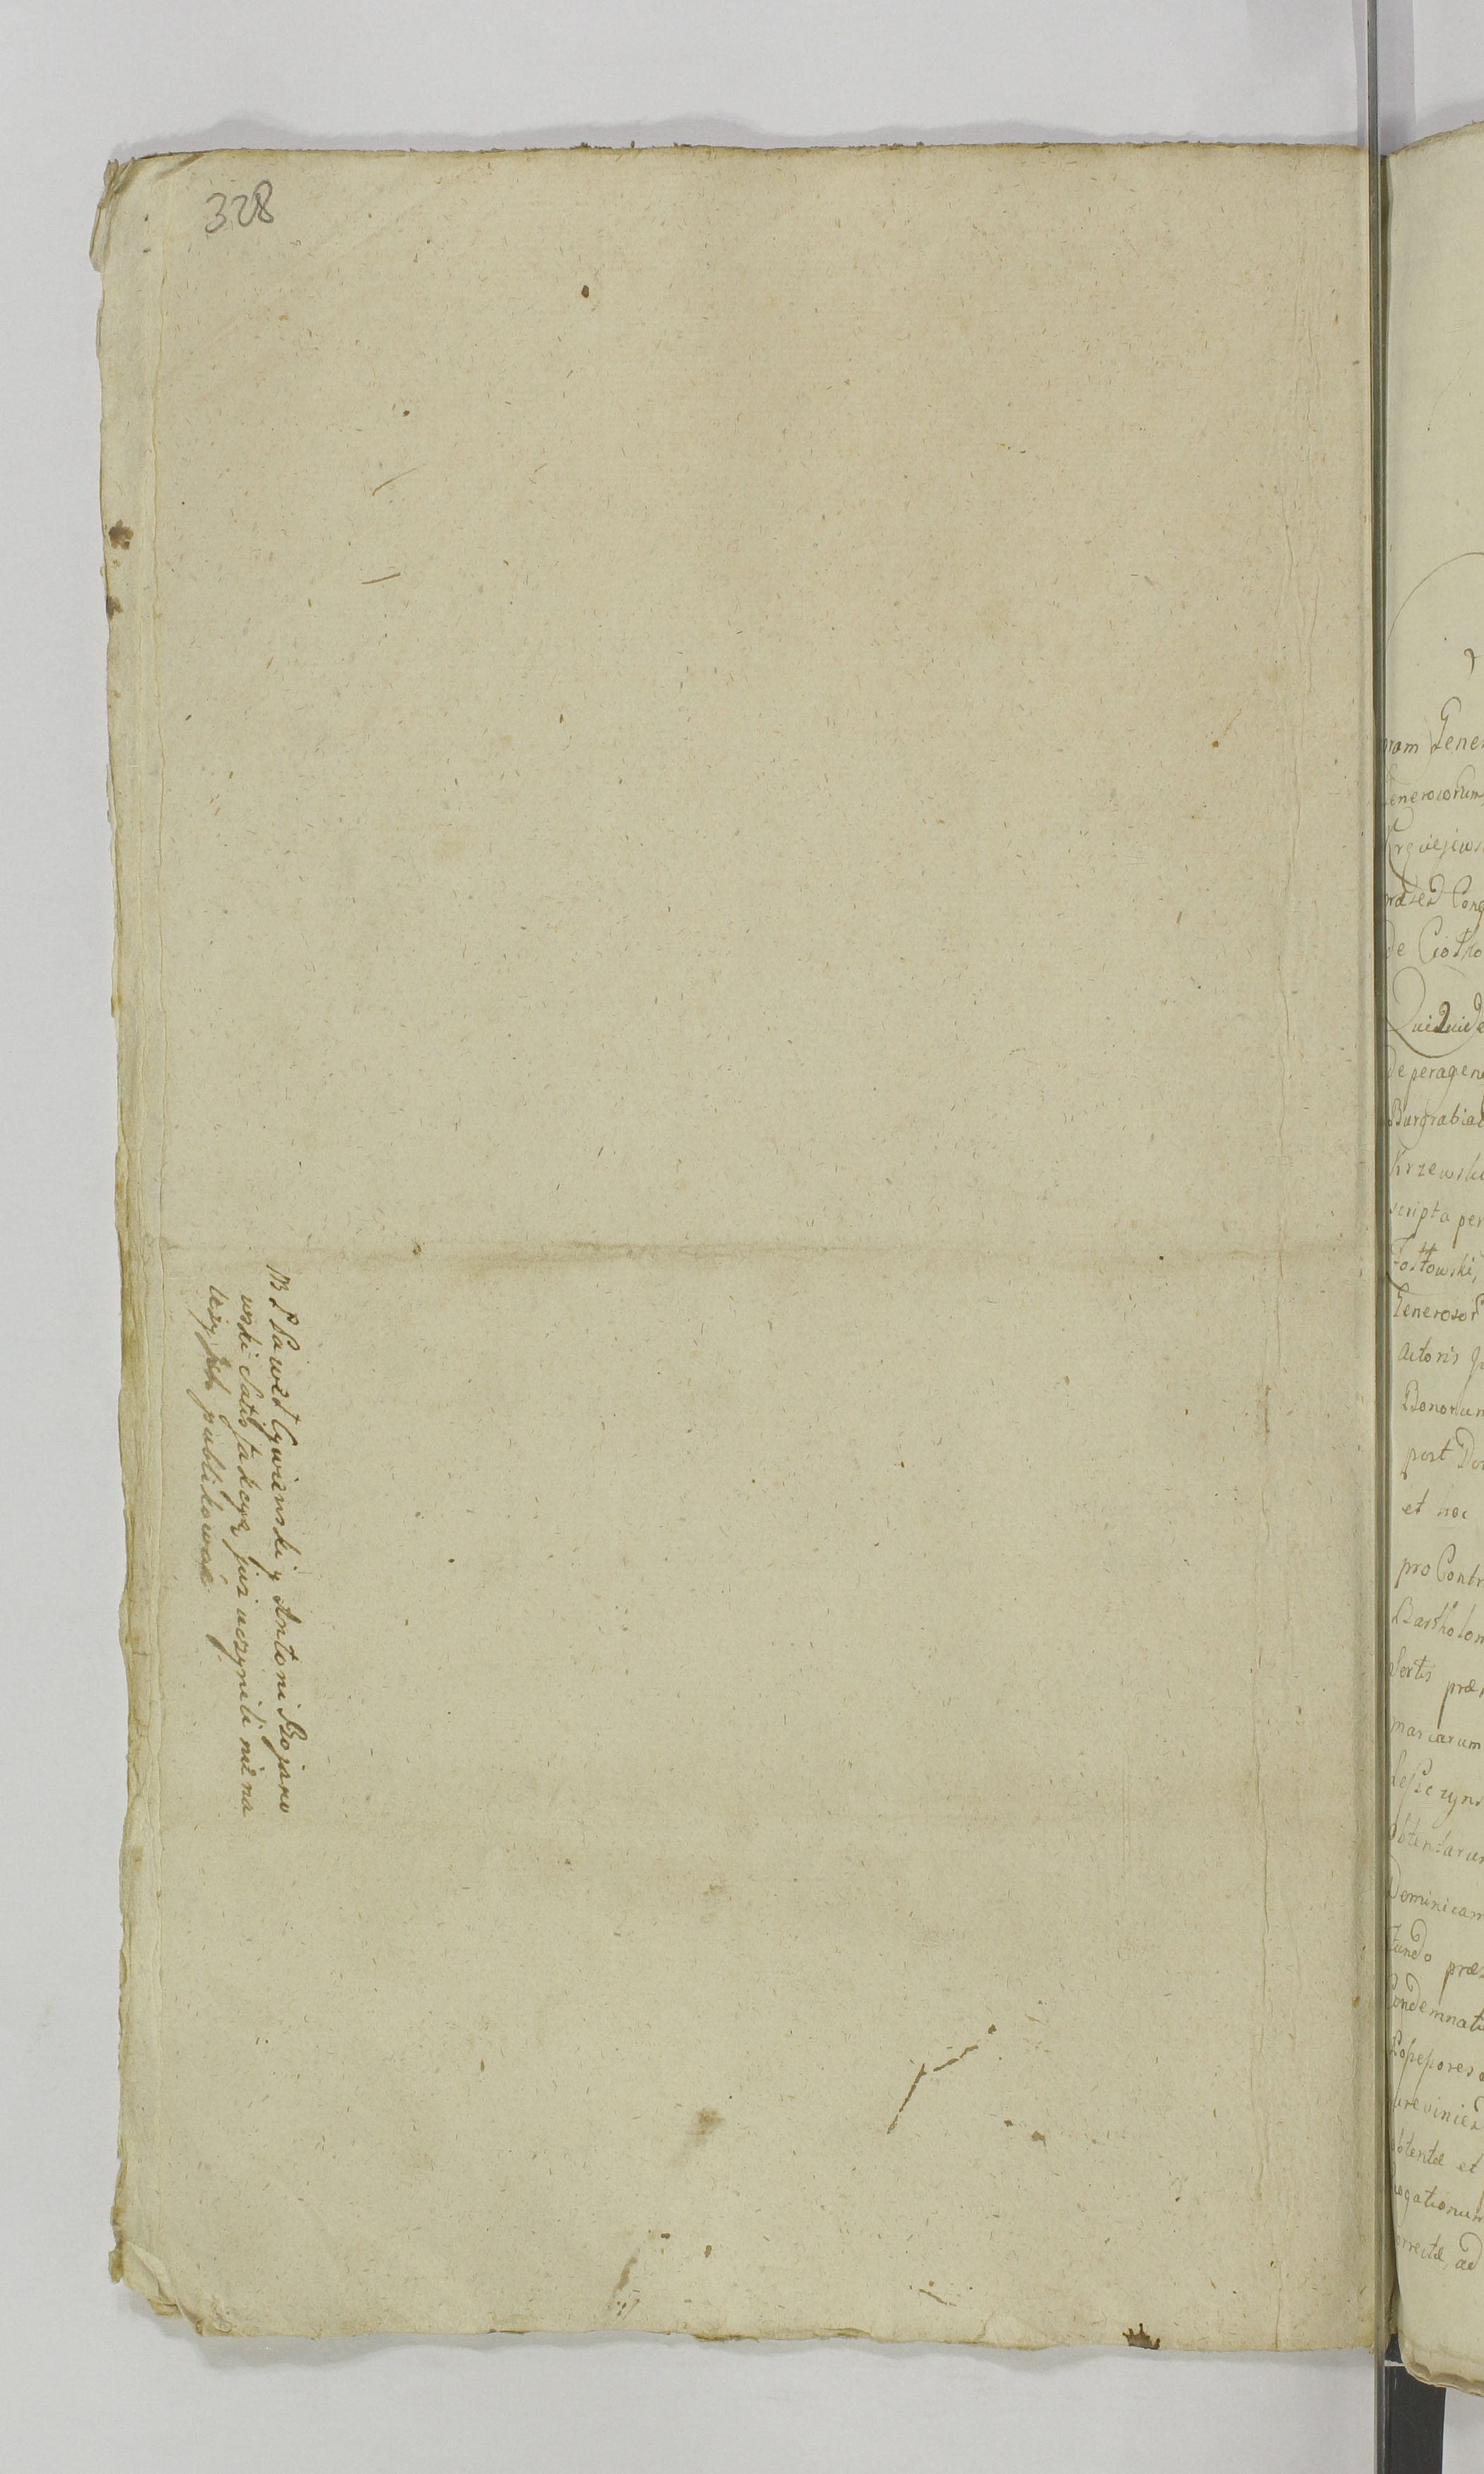 328
NB P Paweł Cywiński y Antoni Bojano
wski Satisfakcyą juz uczynili nie na
lezy ich publikować
ram Gener
Generosorum
præsed Cong
de Ciotko
Quiquide
de peragen
Burgrabiat
Krzewski
scripta per
Tostowski,
Generosor
actoris
Bonorum
post Do
et hoc
pro Contr
Bartholom
Sertis præ
marcarum
Leszczyns
obtentarum
Dominicam
fundo præ
Condemnat
obtentæ et
rogationum
orrectæ, ad